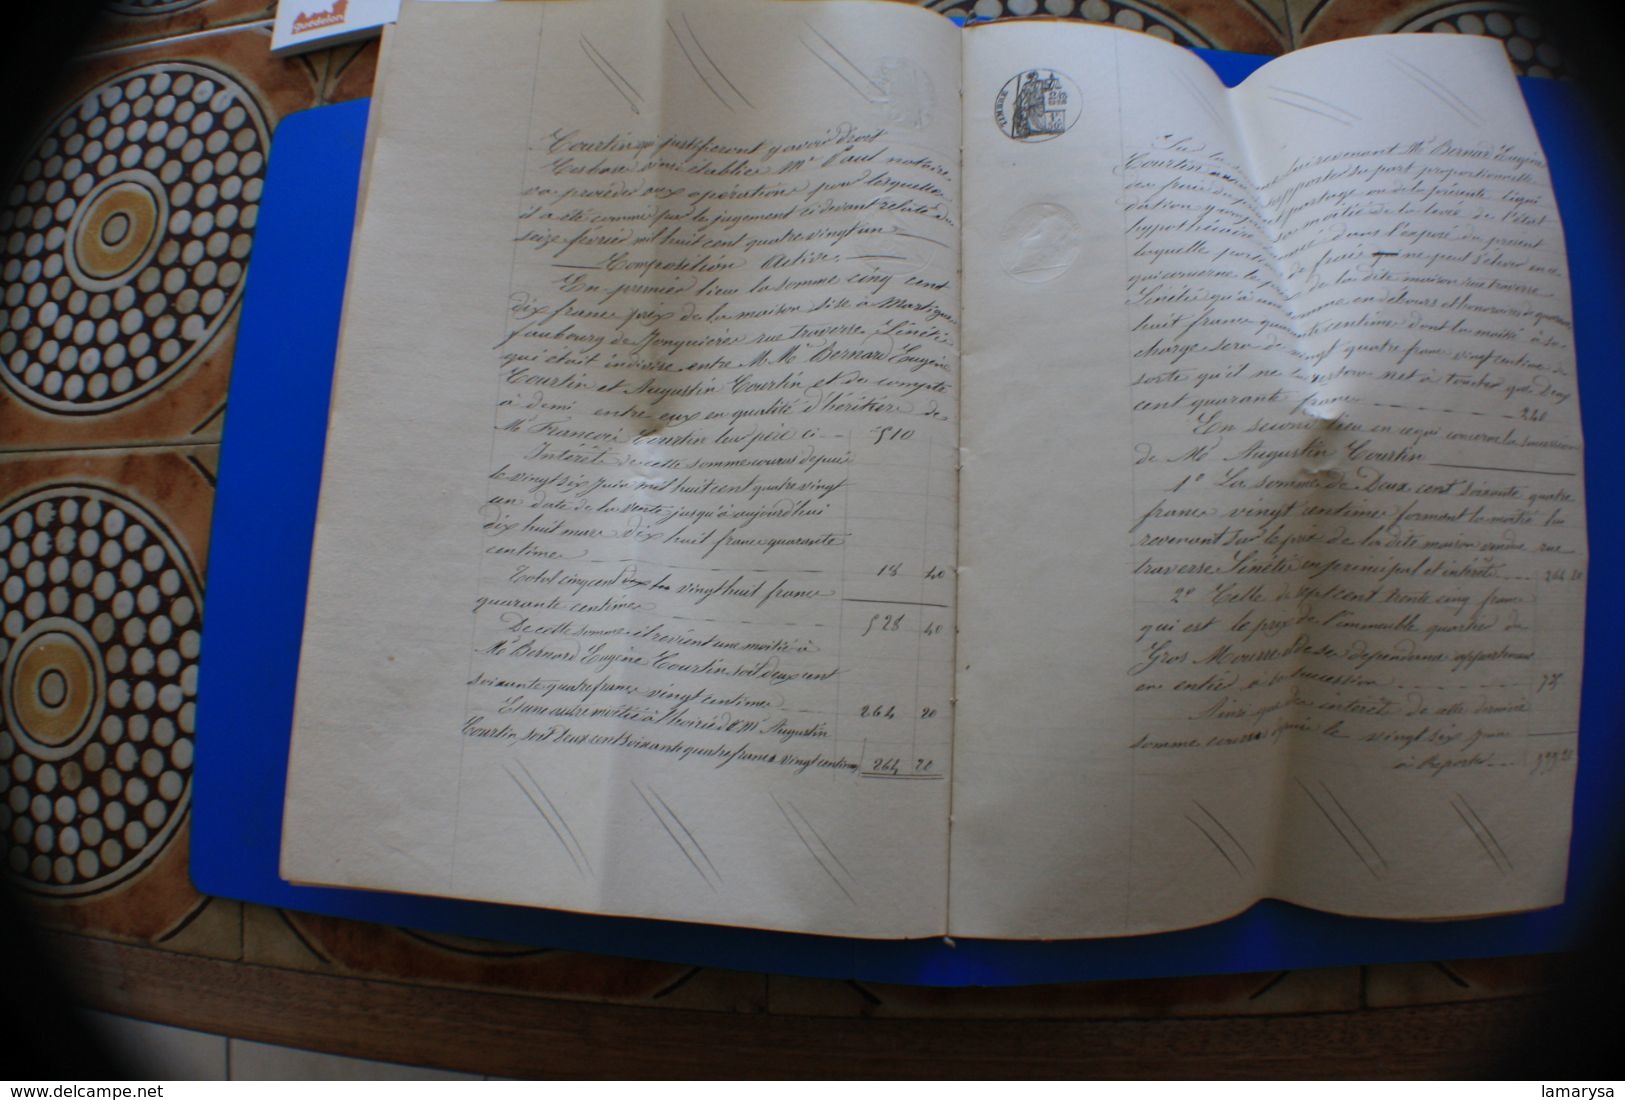 Guedelon
Courtin qui justifieront y avoir droit
Ces bases ainsi établies Mr Paul notaire
va procéder aux opérations pour lesquelles
il a été commis par le jugement ci devant relaté du
seize février mil huit cent quatre vingt un
Composition Active
En premier lieu la somme cinq cent
dix francs prix de la maison sise à Martigues
faubourg de Jonquières rue traverse Sénétié
qui était indivise entre M. Mr Bernard Eugène
Courtin et Augustin Courtin et de compte
à demi entre eux en qualité d'héritiers de
Mr François Courtin leur père ci 510
Intérêts de cette somme courus depuis
le vingt six Juin mil huit cent quatre vingt
un date de la vente jusqu'à aujourd'hui
dix huit mars dix huit francs quarante
centimes 18 40
Total cinq cent vingt huit francs
quarante centimes 528 40
De cette somme il revient une moitié à
Mr Bernard Eugène Courtin soit deux cent
soixante quatre francs vingt centimes 264 20
Et une autre moitié à l'hoirie de Mr Augustin
Courtin, soit Deux cent soixante quatre francs vingt centimes 264 20
TIMBRE
Sur la somme lui revenant Mr Bernard Eugène
Courtin supporter sa part proportionnelle
des frais de partage ou de la présente liqui
dation y compris sa moitié de la levée de l'état
hypothécaire dans l'exposé du présent
laquelle portion de frais ne peut s'élever en ce
qui concerne le prix de la dite maison rue traverse
Sénétié qu'à une somme en débours et honoraires de quarante
huit francs quarante centimes dont la moitié à sa
charge sera de vingt quatre francs vingt centimes de
sorte qu'il ne lui restera net à toucher que deux
cent quarante francs 240
En second lieu en ce qui concerne la succession
de Mr Augustin Courtin
1o La somme de Deux cent soixante quatre
francs vingt centimes formant la moitié lui
revenant sur le prix de la dite maison vendue rue
traverse Sénétié en principal et intérêts 264 20
2o Celle de sept cent trente cinq francs
qui est le prix de l'immeuble quartier du
Gros Mourre et de ses dépendances appartenant
en entier à la succession 735
Ainsi que des intérêts de cette dernière
somme courus depuis le vingt six juin
à Reporter 999 20
delcampe.net
lamarysa